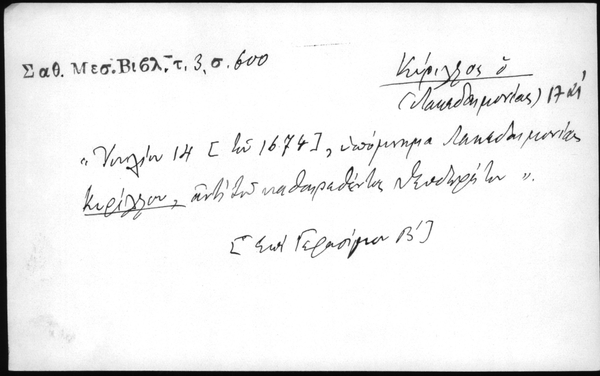 Σαθ. Μεσ. Βιβλ, τ, 3, σ. 600
Κύριλλος ὁ
(Λακεδαιμονίας) 17 αἰ
"Ἰουλίου 14 [τοῦ 1674], ὑπόμνημα Λακεδαιμονίας
Κυρίλλου, ἀντὶ τοῦ καθαιρεθέντος Θεοδωρήτου".
[ἐπὶ Γερασίμου Β']